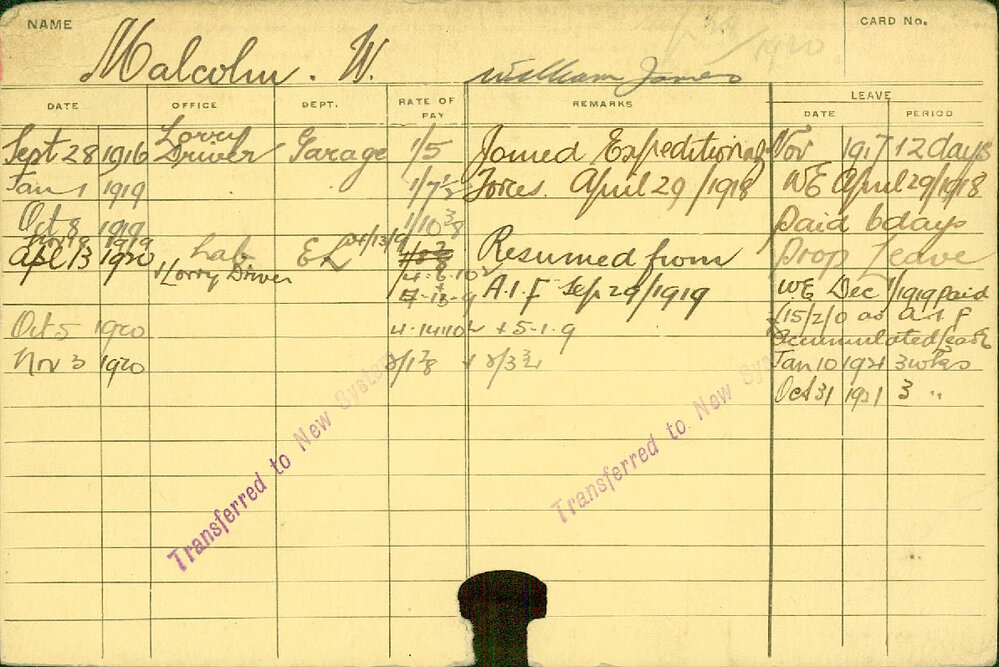 NAME
CARD No.
1920
Malcolm. W. William James
DATE OFFICE DEPT. RATE OF PAY REMARKS LEAVE
DATE PERIOD
Sept 28 1916 Lorry Driver Garage 1/5 Joined Expeditionary Nov 1917 12 days
Jan 1 1919 1/7½ Forces. April 29/1918 WE April 29/1918
Oct 8 1919 1/10⅜ Paid 6 days
Nov 19 1919
Apl 13 1920 Lab EL Resumed from Prop Leave
+ Lorry Driver 4-8-10½ A.I.F Sep 29/1919 WE Dec 1919 paid
+ 4-13-9 £15/2/0 as A I F
Oct 5 1920 4-14-10½ + 5-1-9 accumulated leave
Nov 3 1920 2/1⅞ + 2/3¾ Jan 10 1921 3 wks
Oct 31 1921 3 "
Transferred to New System
Transferred to New System